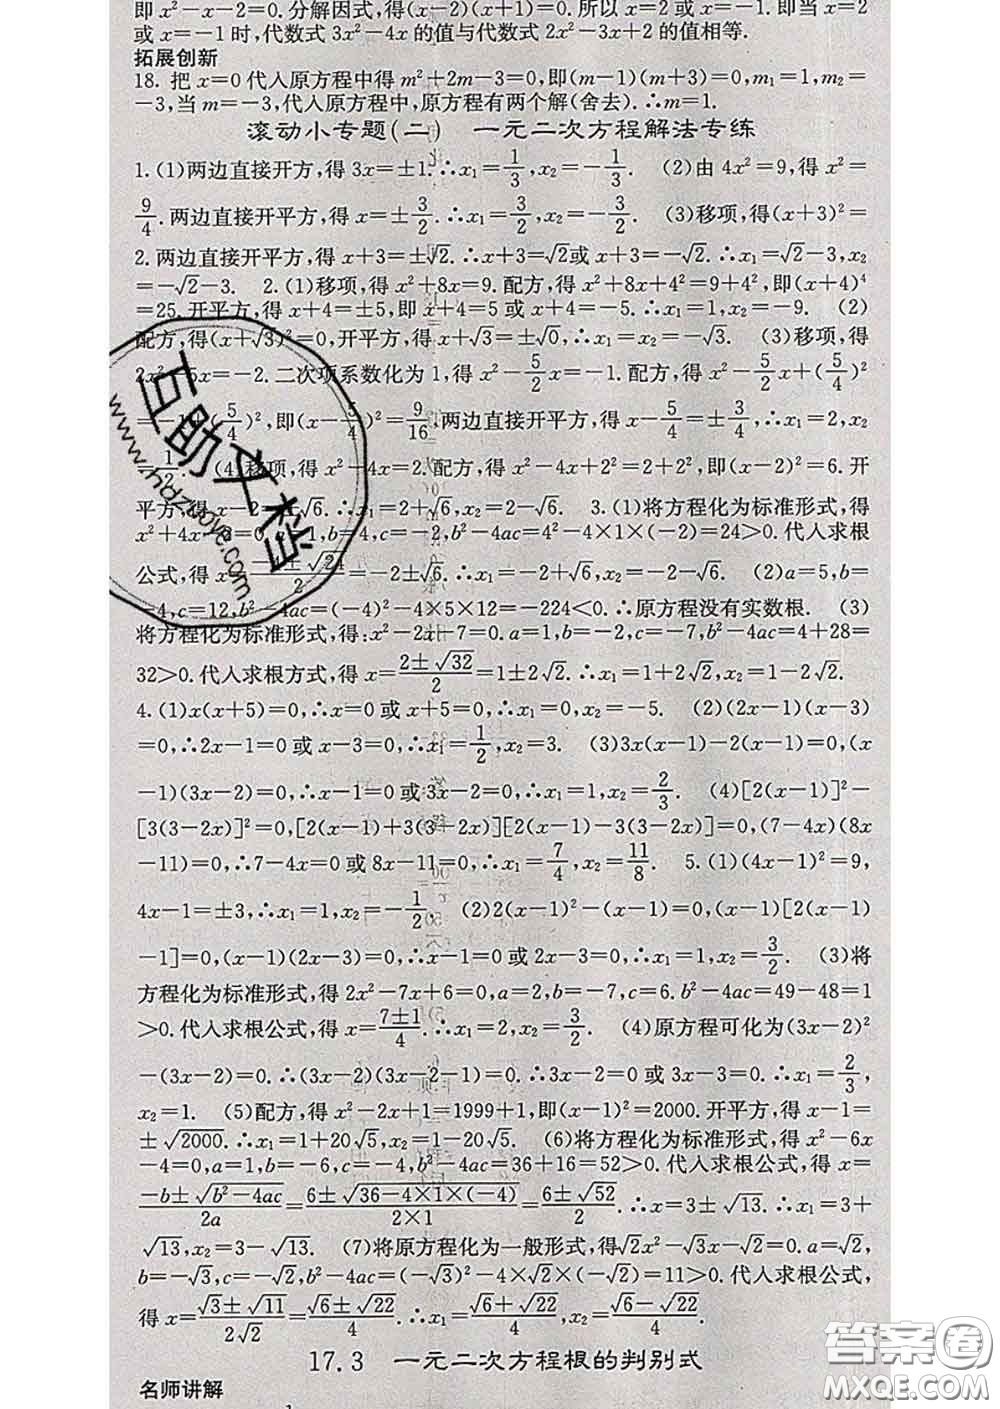 即 x²-x-2=0.分解因式,得(x-2)(x+1)=0.所以 x=2 或 x=-1.即当 x=2
或 x=-1 时,代数式 3x²-4x 的值与代数式 2x²-3x+2 的值相等.
拓展创新
18. 把 x=0 代入原方程中得 m²+2m-3=0,即(m-1)(m+3)=0,m₁=1,m₂=
-3,当 m=-3,代入原方程中,原方程有两个解(舍去).∴m=1.
滚动小专题(二) 一元二次方程解法专练
1.(1)两边直接开方,得 3x=±1.∴x₁=1/3,x₂=-1/3. (2)由 4x²=9,得 x²=
9/4.两边直接开平方,得 x=±3/2.∴x₁=3/2,x₂=-3/2. (3)移项,得(x+3)²=
2.两边直接开平方,得 x+3=±√2.∴x+3=√2或 x+3=-√2.∴x₁=√2-3,x₂
=-√2-3. 2.(1)移项,得 x²+8x=9.配方,得 x²+8x+4²=9+4²,即(x+4)⁴
=25.开平方,得 x+4=±5,即 x+4=5 或 x+4=-5.∴x₁=1,x₂=-9. (2)
配方,得(x+√3)²=0,开平方,得 x+√3=±√0,∴x₁=x₂=-√3. (3)移项,得
2x²-5x=-2.二次项系数化为 1,得 x²-5/2x=-1.配方,得 x²-5/2x+(5/4)²
(5/4)²,即(x-5/4)²=9/16.两边直接开平方,得 x-5/4=±3/4,∴x₁=2,x₂
=1/2. (4)移项,得 x²-4x=2.配方,得 x²-4x+2²=2+2²,即(x-2)²=6.开
平方,得 x-2=±√6.∴x₁=2+√6,x₂=2-√6. 3.(1)将方程化为标准形式,得
x²+4x-2=0,a=1,b=4,c=-2,b²-4ac=4²-4×1×(-2)=24>0.代入求根
公式,得 x=(-4±√24)/2=-2±√6.∴x₁=-2+√6,x₂=-2-√6. (2)a=5,b=
-4,c=12,b²-4ac=(-4)²-4×5×12=-224<0.∴原方程没有实数根. (3)
将方程化为标准形式,得:x²-2x-7=0.a=1,b=-2,c=-7,b²-4ac=4+28=
32>0.代入求根方式,得 x=(2±√32)/2=1±2√2.∴x₁=1+2√2,x₂=1-2√2.
4.(1)x(x+5)=0,∴x=0 或 x+5=0,∴x₁=0,x₂=-5. (2)(2x-1)(x-3)
=0,∴2x-1=0 或 x-3=0,∴x₁=1/2,x₂=3. (3)3x(x-1)-2(x-1)=0,(x
-1)(3x-2)=0,∴x-1=0 或 3x-2=0,∴x₁=1,x₂=2/3. (4)[2(x-1)]²-
[3(3-2x)]²=0,[2(x-1)+3(3-2x)][2(x-1)-3(3-2x)]=0,(7-4x)(8x
-11)=0,∴7-4x=0 或 8x-11=0,∴x₁=7/4,x₂=11/8. 5.(1)(4x-1)²=9,
4x-1=±3,∴x₁=1,x₂=-1/2. (2)2(x-1)²-(x-1)=0,(x-1)[2(x-1)
-1]=0,(x-1)(2x-3)=0,∴x-1=0 或 2x-3=0,∴x₁=1,x₂=3/2. (3)将
方程化为标准形式,得 2x²-7x+6=0,a=2,b=-7,c=6.b²-4ac=49-48=1
>0.代入求根公式,得 x=(7±1)/4.∴x₁=2,x₂=3/2. (4)原方程可化为(3x-2)²
-(3x-2)=0.∴(3x-2)(3x-2-1)=0.∴3x-2=0 或 3x-3=0.∴x₁=2/3,
x₂=1. (5)配方,得 x²-2x+1=1999+1,即(x-1)²=2000.开平方,得 x-1=
±√2000.∴x₁=1+20√5,x₂=1-20√5. (6)将方程化为标准形式,得 x²-6x
-4=0,a=1,b=-6,c=-4,b²-4ac=36+16=52>0.代入求根公式,得 x=
(-b±√(b²-4ac))/2a=(6±√(36-4×1×(-4)))/(2×1)=(6±√52)/2.∴x=3±√13.∴x₁=3+
√13,x₂=3-√13. (7)将原方程化为一般形式,得√2x²-√3x-√2=0.a=√2,
b=-√3,c=-√2,b²-4ac=(-√3)²-4×√2×(-√2)=11>0.代入求根公式,
得 x=(√3±√11)/2√2=(√6±√22)/4.∴x₁=(√6+√22)/4,x₂=(√6-√22)/4.
17.3 一元二次方程根的判别式
名师讲解
互助文档
www.hdzuoye.com
答案圈
MXQE.COM